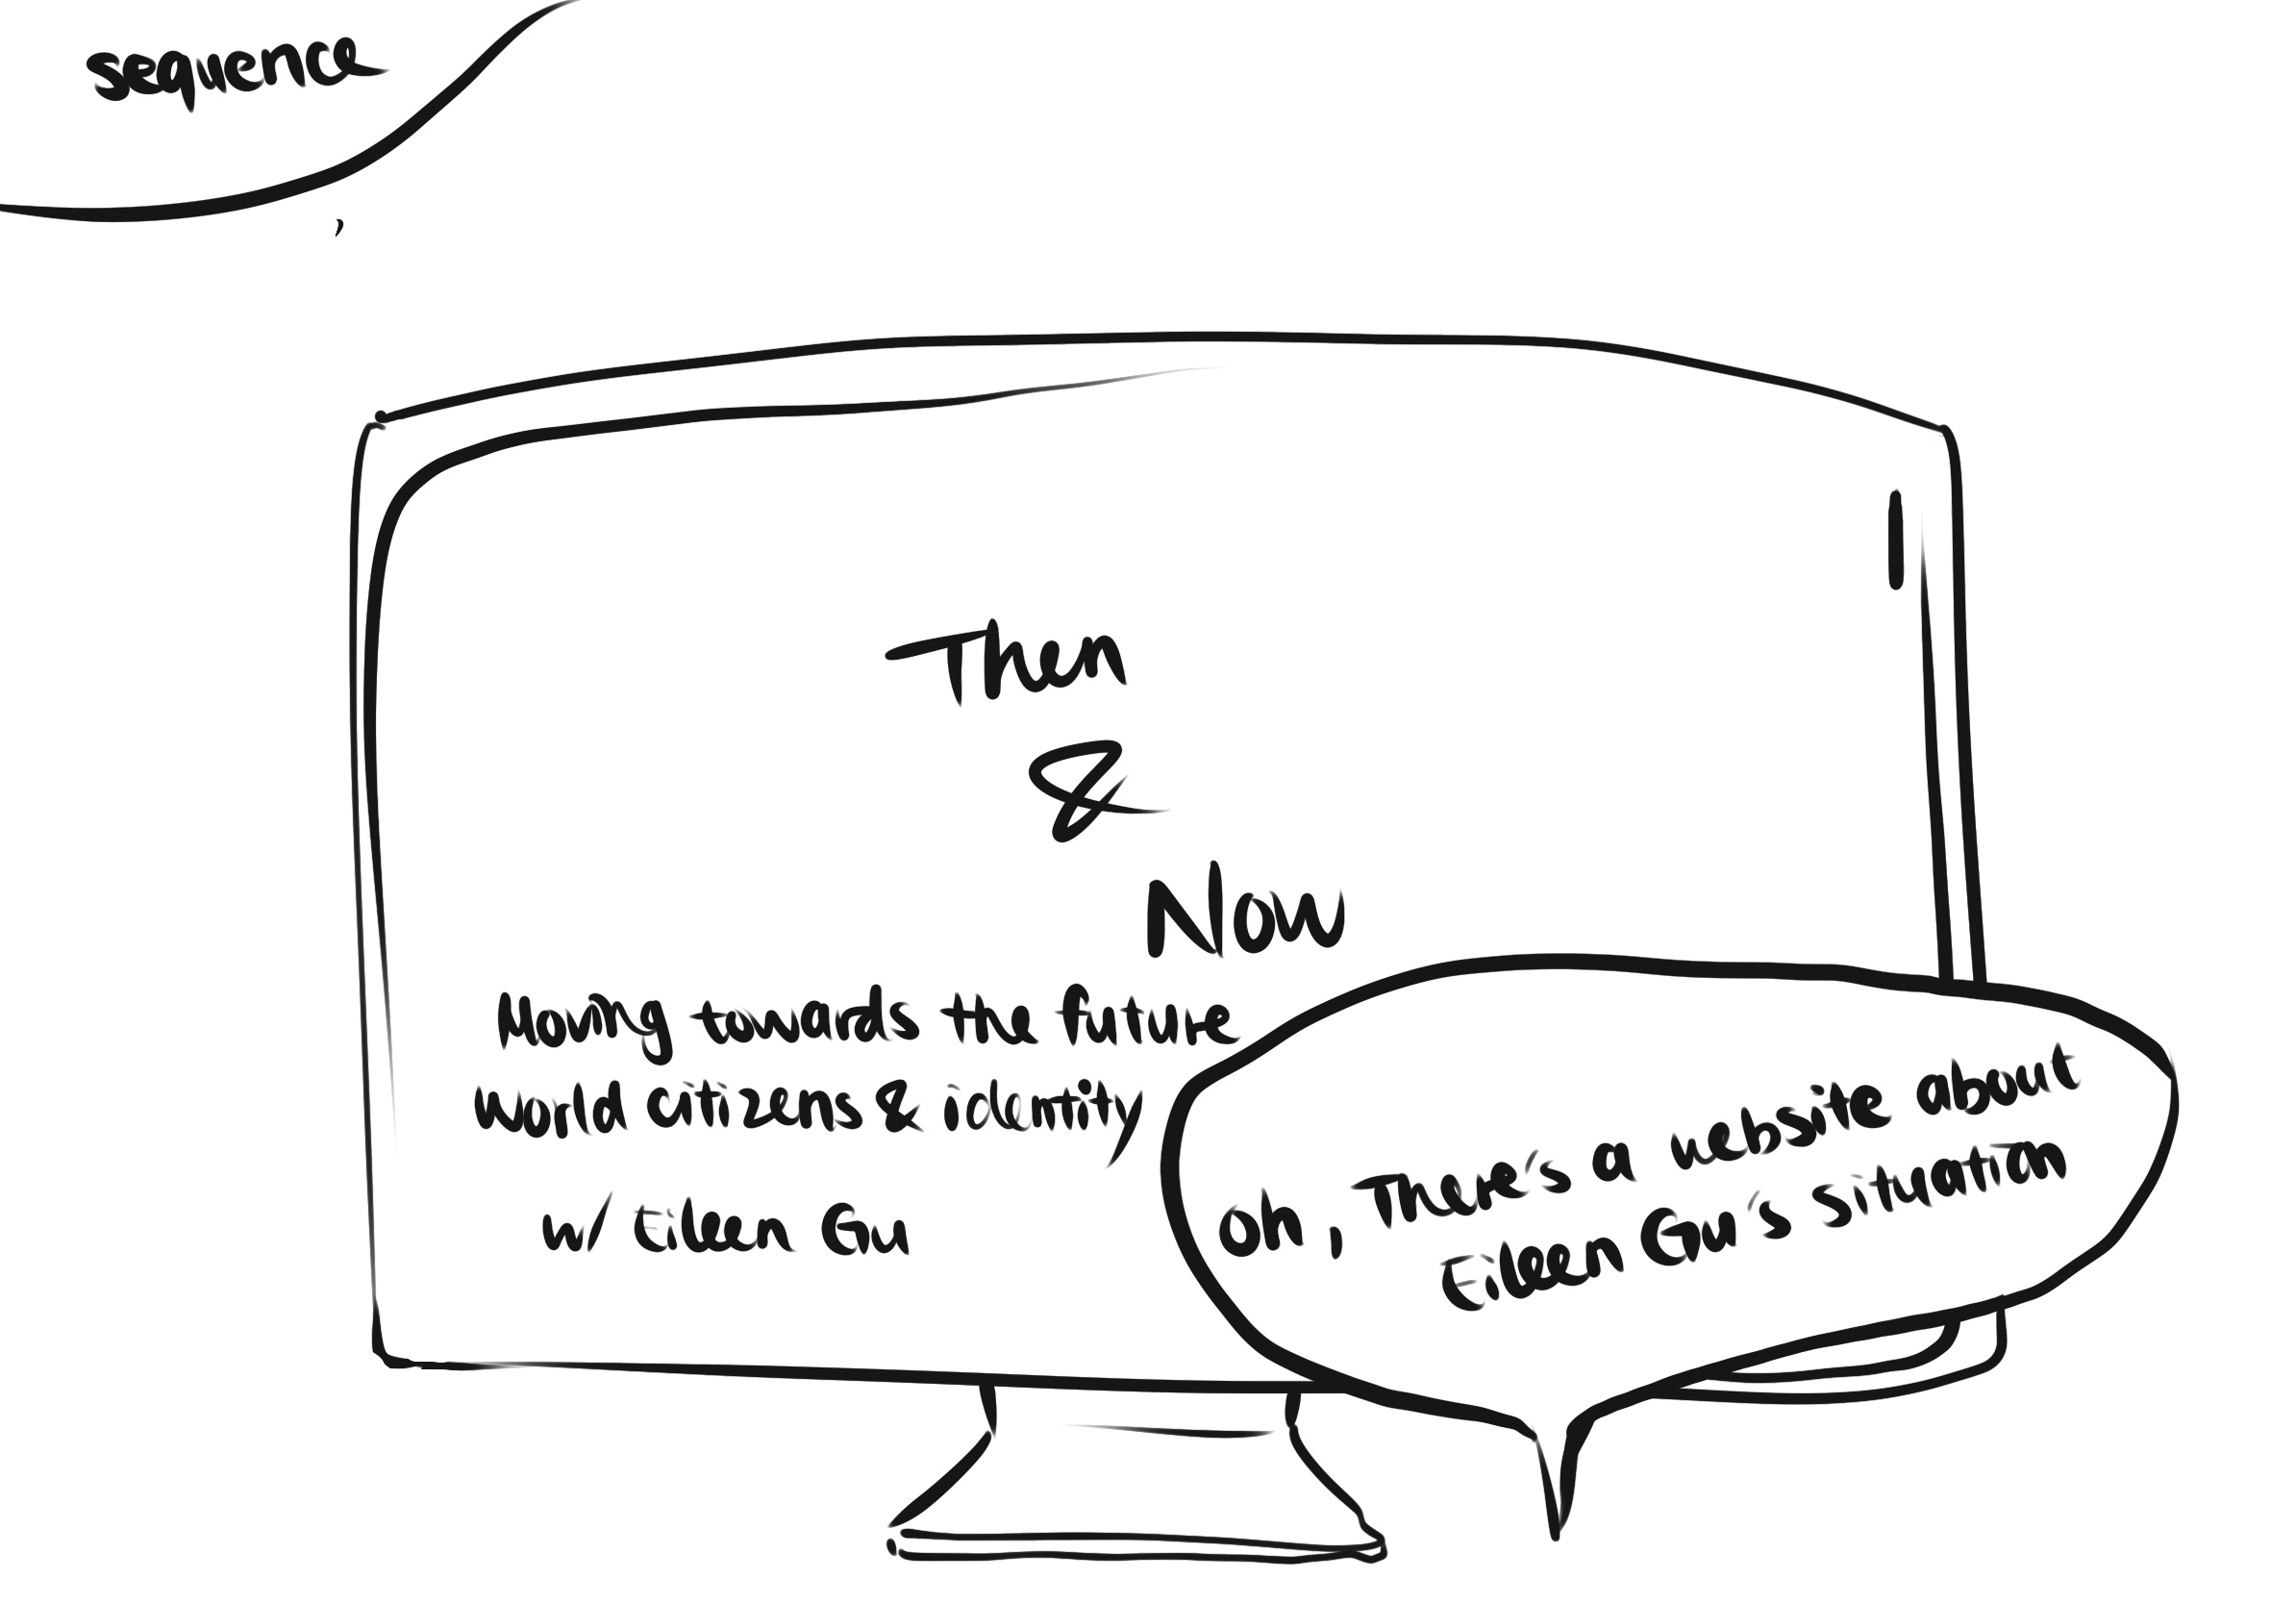 sequence
Then
&
Now
Moving towards the future
World citizens & identity
w/ Eileen Gu
Oh, There's a website about
Eileen Gu's situation